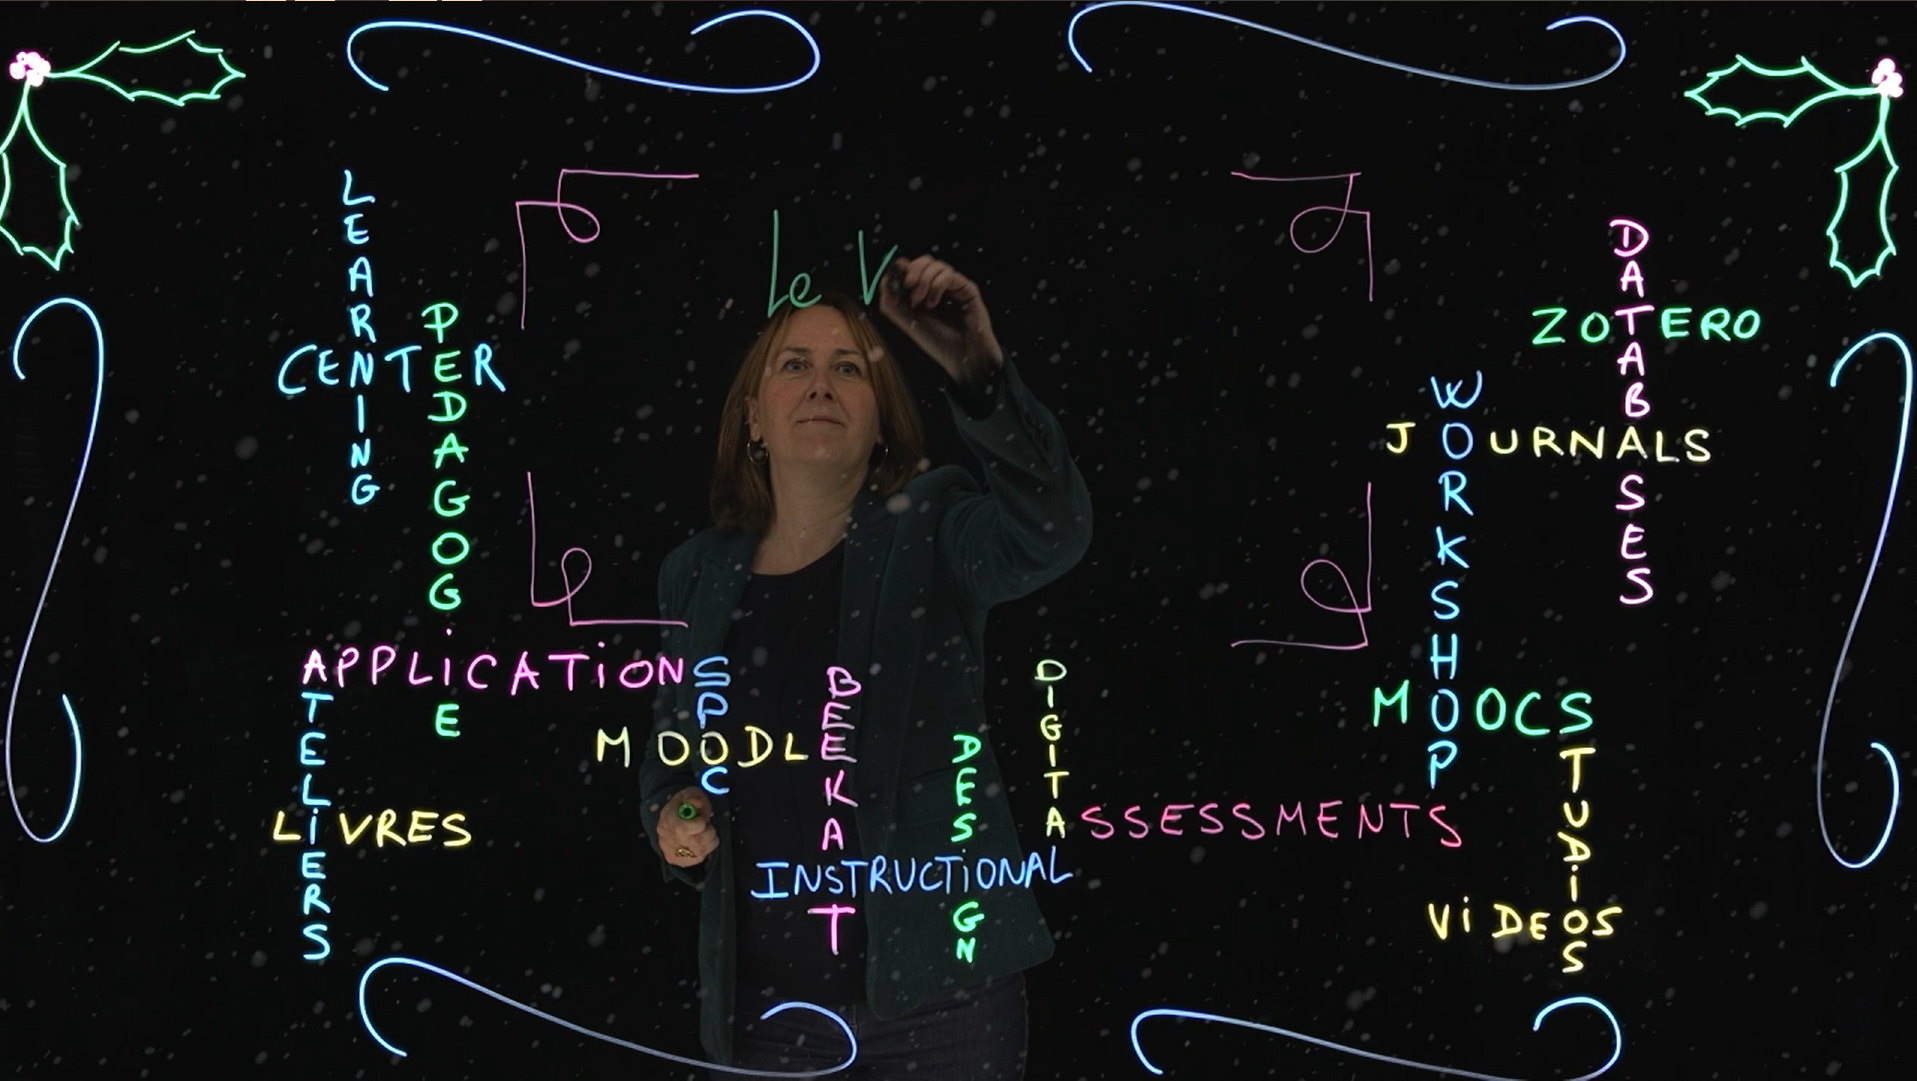 Le V
LEARNING
CENTER
PEDAGOGiE
APPLiCATiON
ATELiERS
LiVRES
SPOC
MOODLE
BEEKAST
INSTRUCTiONAL
DESiGN
DIGITAL
ASSESSMENTS
WORKSHOP
DATABASES
ZOTERO
JOURNALS
MOOCS
STUDiOS
ViDEOS